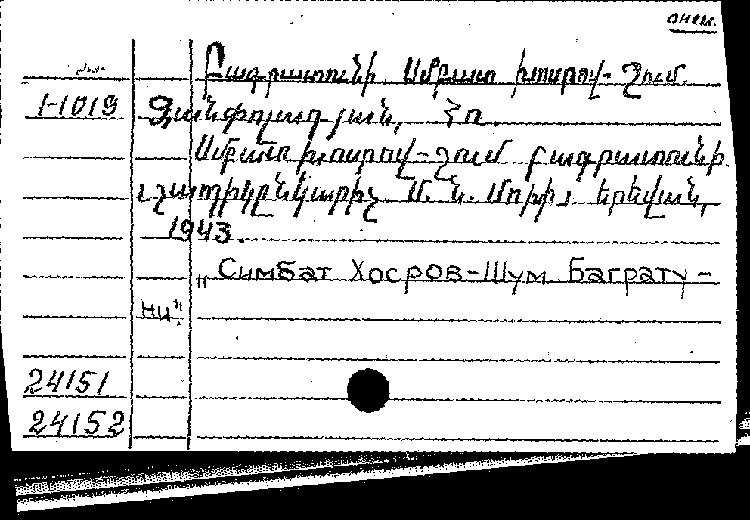 Բագրատունի Սմբատ խոսրով-Շում
1-1019 Ջանփոլադյան, Հռ.
Սմբատ խոսրով-Շում Բագրատունի
Մ. և. Երևան,
1943.
„Симбат Хосров-Шум Баграту-
ни".
24151
24152